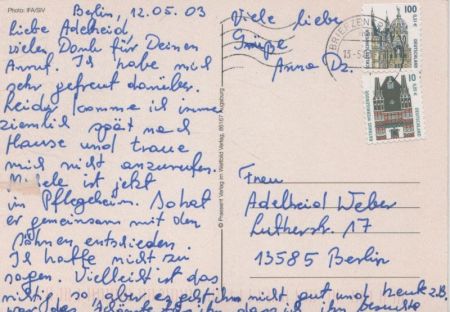 Photo: IFA/SIV
Berlin, 12.05.03
liebe Adelheid,
vielen Dank für Deinen
Anruf. Ich habe mich
sehr gefreut darüber.
Leider komme ich immer
ziemlich spät nach
Hause und traue
mich nicht anzurufen.
ist jetzt
in Pflegeheim. So hat
er gemeinsam mit den
Söhnen entschieden.
Ich hatte nicht zu
sagen. Vielleicht ist das
richtig so, aber es geht ihm nicht gut und
das Schönste für ihn, dass ich ihn besuche
Viele liebe
Grüße
Anna Dz.
© Praesent Verlag im Weltbild Verlag, 86167 Augsburg
BRIEFZENTRUM
100
10
DEUTSCHLAND
DEUTSCHLAND
Frau
Adelheid Weber
Lutherstr. 17
13585 Berlin